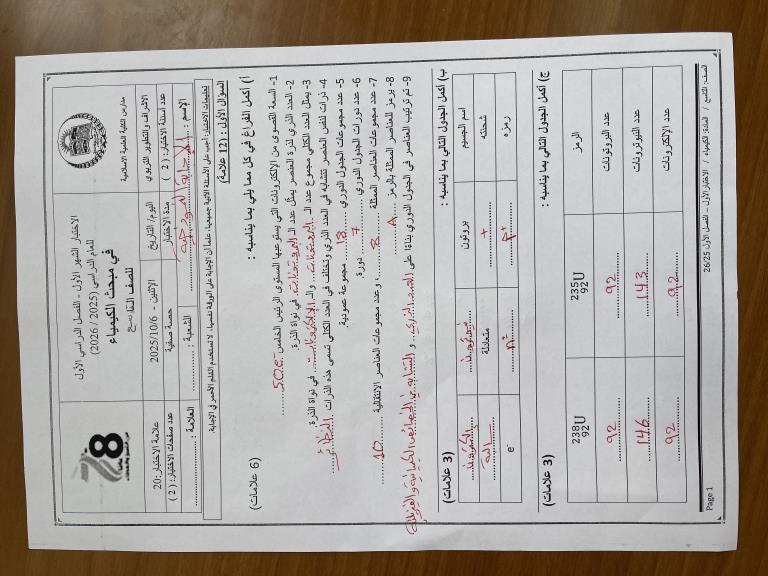 مدارس الكلية العلمية الاسلامية
الاختبار الشهر الأول - الفصل الدراسي الأول
للعام الدراسي (2025 / 2026)
في مبحث الكيمياء
للصف التاسع
الاشراف والتطوير التربوي
اليوم/ التاريخ
الإثنين - 2025/10/6
علامة الاختبار: 20
عدد أسئلة الاختبار: ( 2 )
مدة الاختبار
حصة صفية
عدد صفحات الاختبار: ( 2 )
الإسم :
الشعبة :
العلامة :
تعليمات الاختبار: أجيب على الأسئلة الآتية جميعها، علما أن الإجابة على الورقة نفسها، لا تستخدم القلم الأحمر في الإجابة.
السؤال الأول : (12 علامة)
أ) أكمل الفراغ في كل مما يلي بما يناسبه : (6 علامات)
1- السعة القصوى من الإلكترونات التي يستوعبها المستوى الرئيس الخامس 50e-
2- العدد الذري لذرة العنصر يمثل عدد الـ البروتونات في نواة الذرة.
3- يمثل العدد الكتلي مجموع عدد الـ البروتونات والـ في نواة الذرة.
4- ذرات لنفس العنصر تتشابه في العدد الذري وتختلف في العدد الكتلي تسمى هذه الذرات النظائر
5- عدد مجموعات الجدول الدوري 18 مجموعة عمودية.
6- عدد دورات الجدول الدوري 7 دورة
7- عدد مجموعات العناصر الممثلة 8 ، وعدد مجموعات العناصر الانتقالية 10
8- يرمز للعناصر الممثلة بالرمز A
9- تم ترتيب العناصر في الجدول الدوري بناءً على العدد الذري و التشابه في الخصائص الكيميائية والفيزيائية
ب) أكمل الجدول التالي بما يناسبه : (3 علامات)
اسم الجسيم بروتون نيوترون إلكترون
شحنته + متعادلة سالبة
رمزه P+ n± e-
ج) أكمل الجدول التالي بما يناسبه : (3 علامات)
الرمز 235 92 U و 238 92 U
عدد البروتونات 92 92
عدد النيوترونات 143 146
عدد الإلكترونات 92 92
الصف: التاسع / المادة: الكيمياء / الاختبار الأول - الفصل الأول 26/25
Page 1